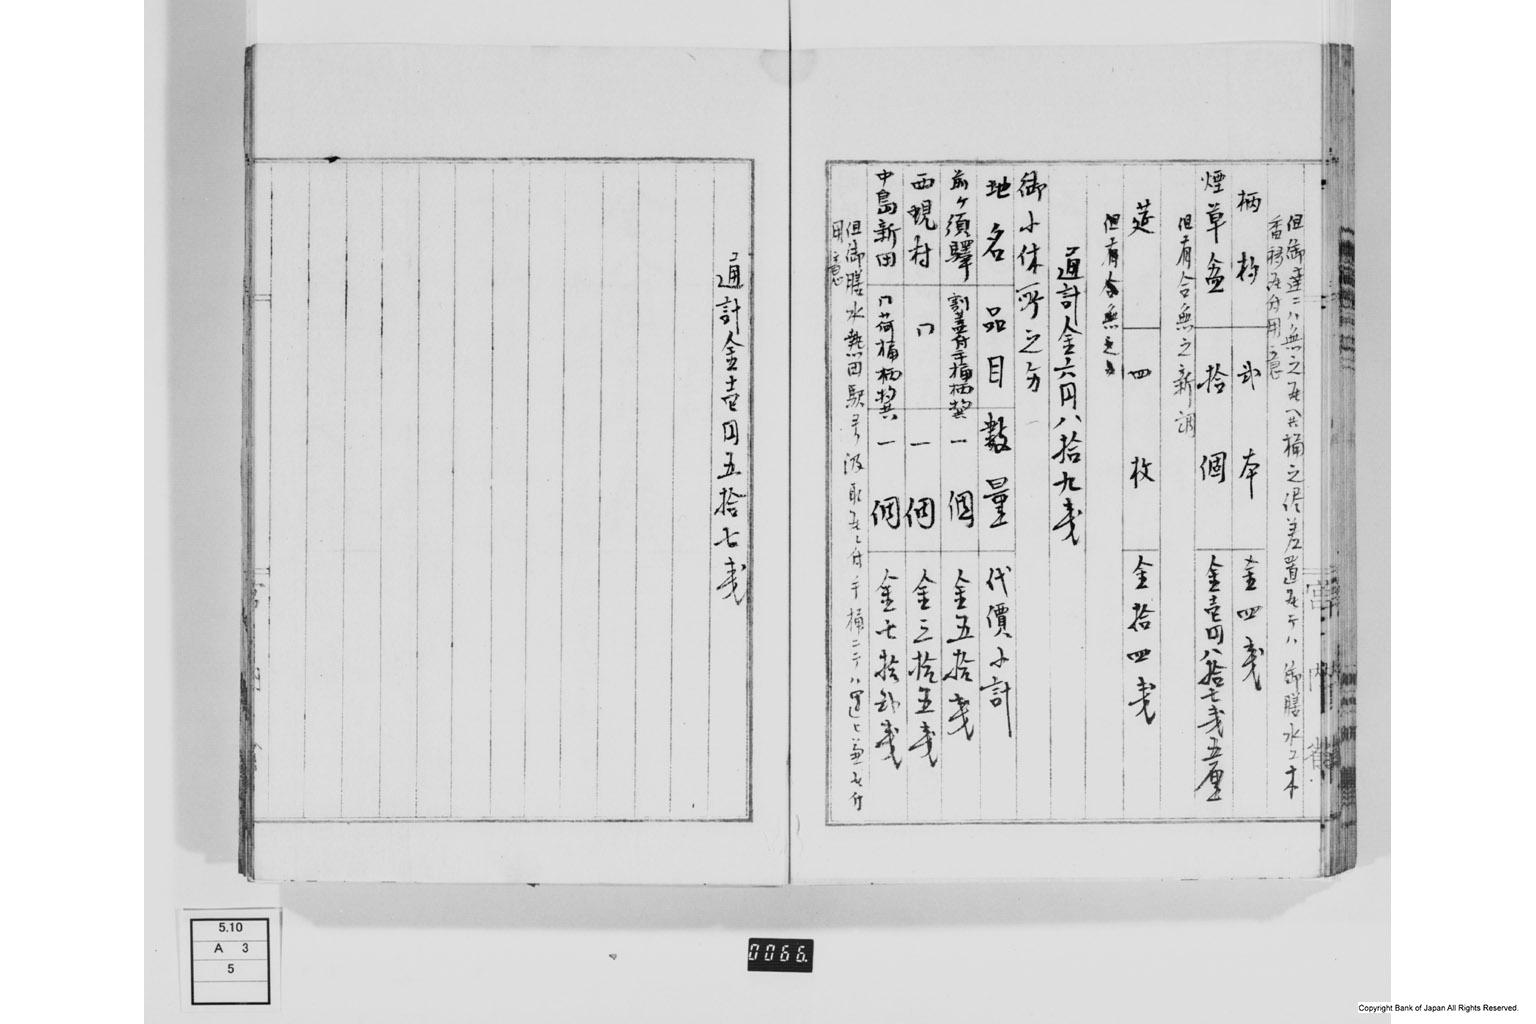 但御達ニハ無之
御膳水
香移
用意
柄杓 弐本 金四戔
煙草盆 拾個 金壱円八拾七戔五厘
但有合無之新調
莚 四枚 金拾四戔
但有合無之分
通計金六円八拾九戔
御小休所之分
地名 品目 数量 代價小計
前ヶ須驛 割蓋付手桶柄杓 一個 金五拾戔
西蜆村 〃 一個 金三拾五戔
中島新田 〃荷桶柄杓共 一個 金七拾弐戔
但御膳水熱田駅ヨリ汲取
用意
通計金壱円五拾七戔
宮内省
5.10
A 3
5
0066.
Copyright Bank of Japan All Rights Reserved.